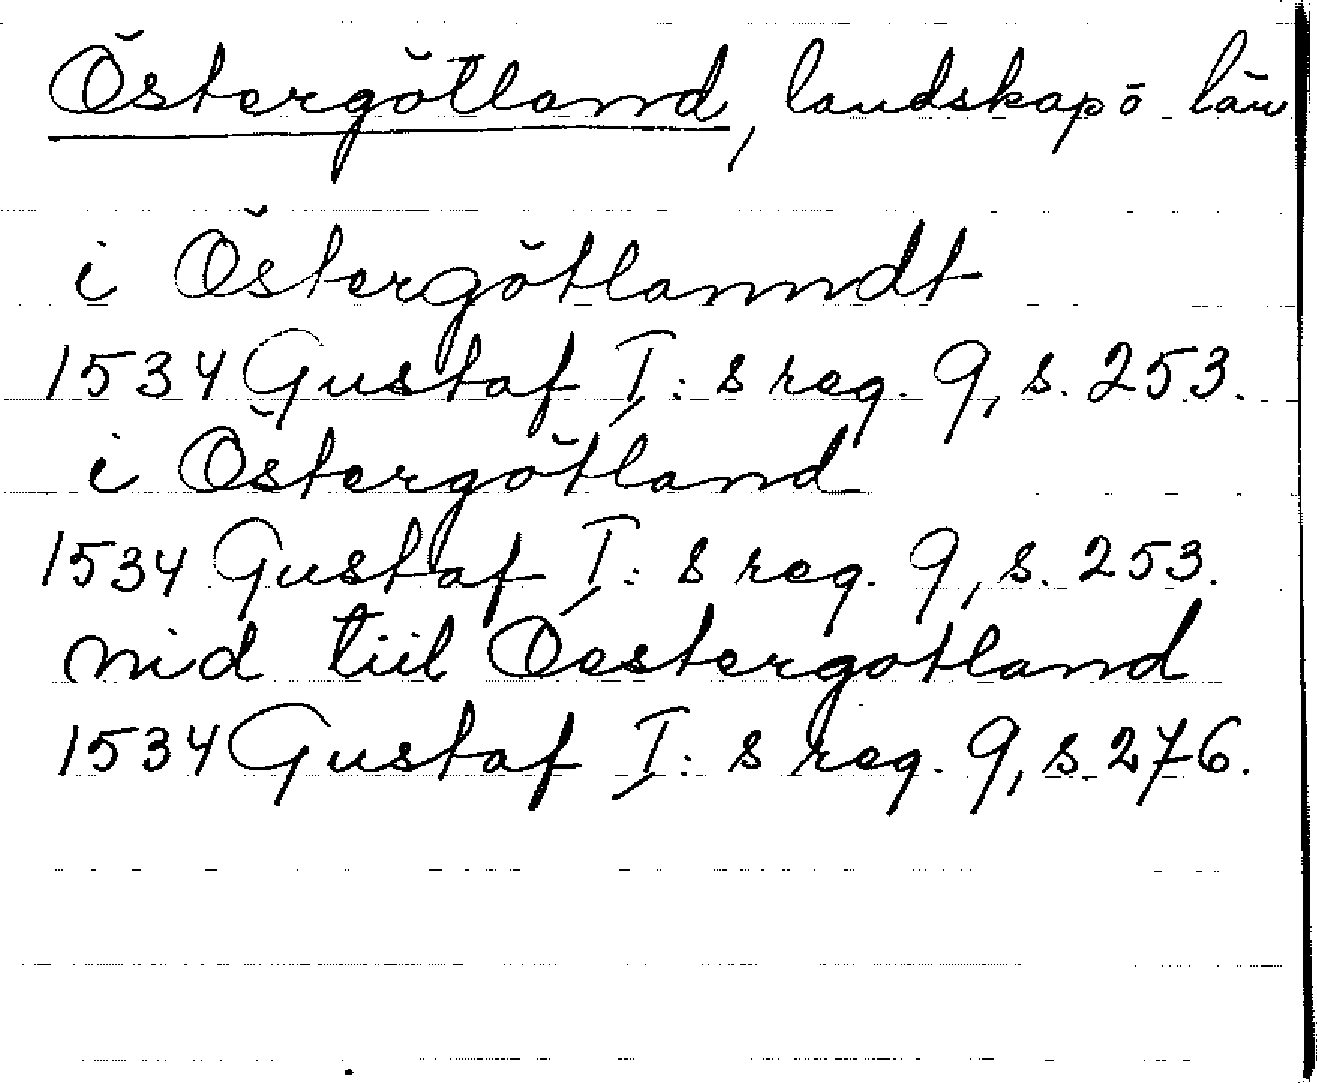 Östergötland, landskap o län
i Östergötlanndt
1534 Gustaf I:s reg. 9, s. 253.
i Östergötland
1534 Gustaf I:s reg. 9, s. 253.
nid tiil Oestergotland
1534 Gustaf I:s reg. 9, s. 276.